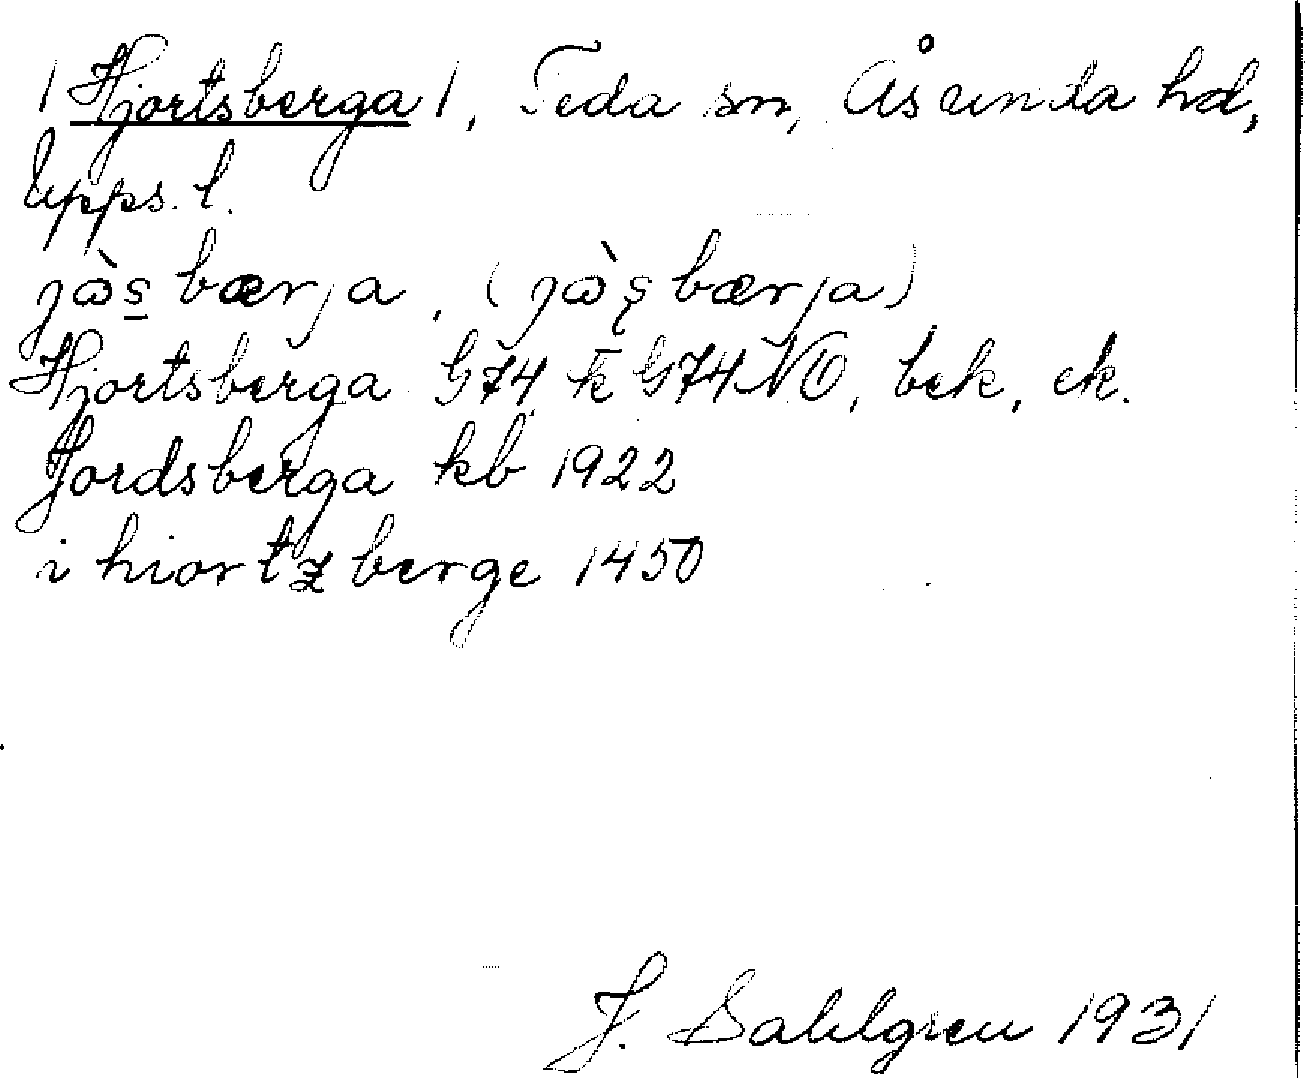 /Hjortsberga/, Teda sn, Åsunda hd,
Upps. l.
jɷ̀s̲bærja, (jɷ̀ʂbærja)
Hjortsberga G74, k̄ G74NO, bek, ek.
Jordsberga kb 1922
i hiortzberge 1450
J. Dahlgren 1931